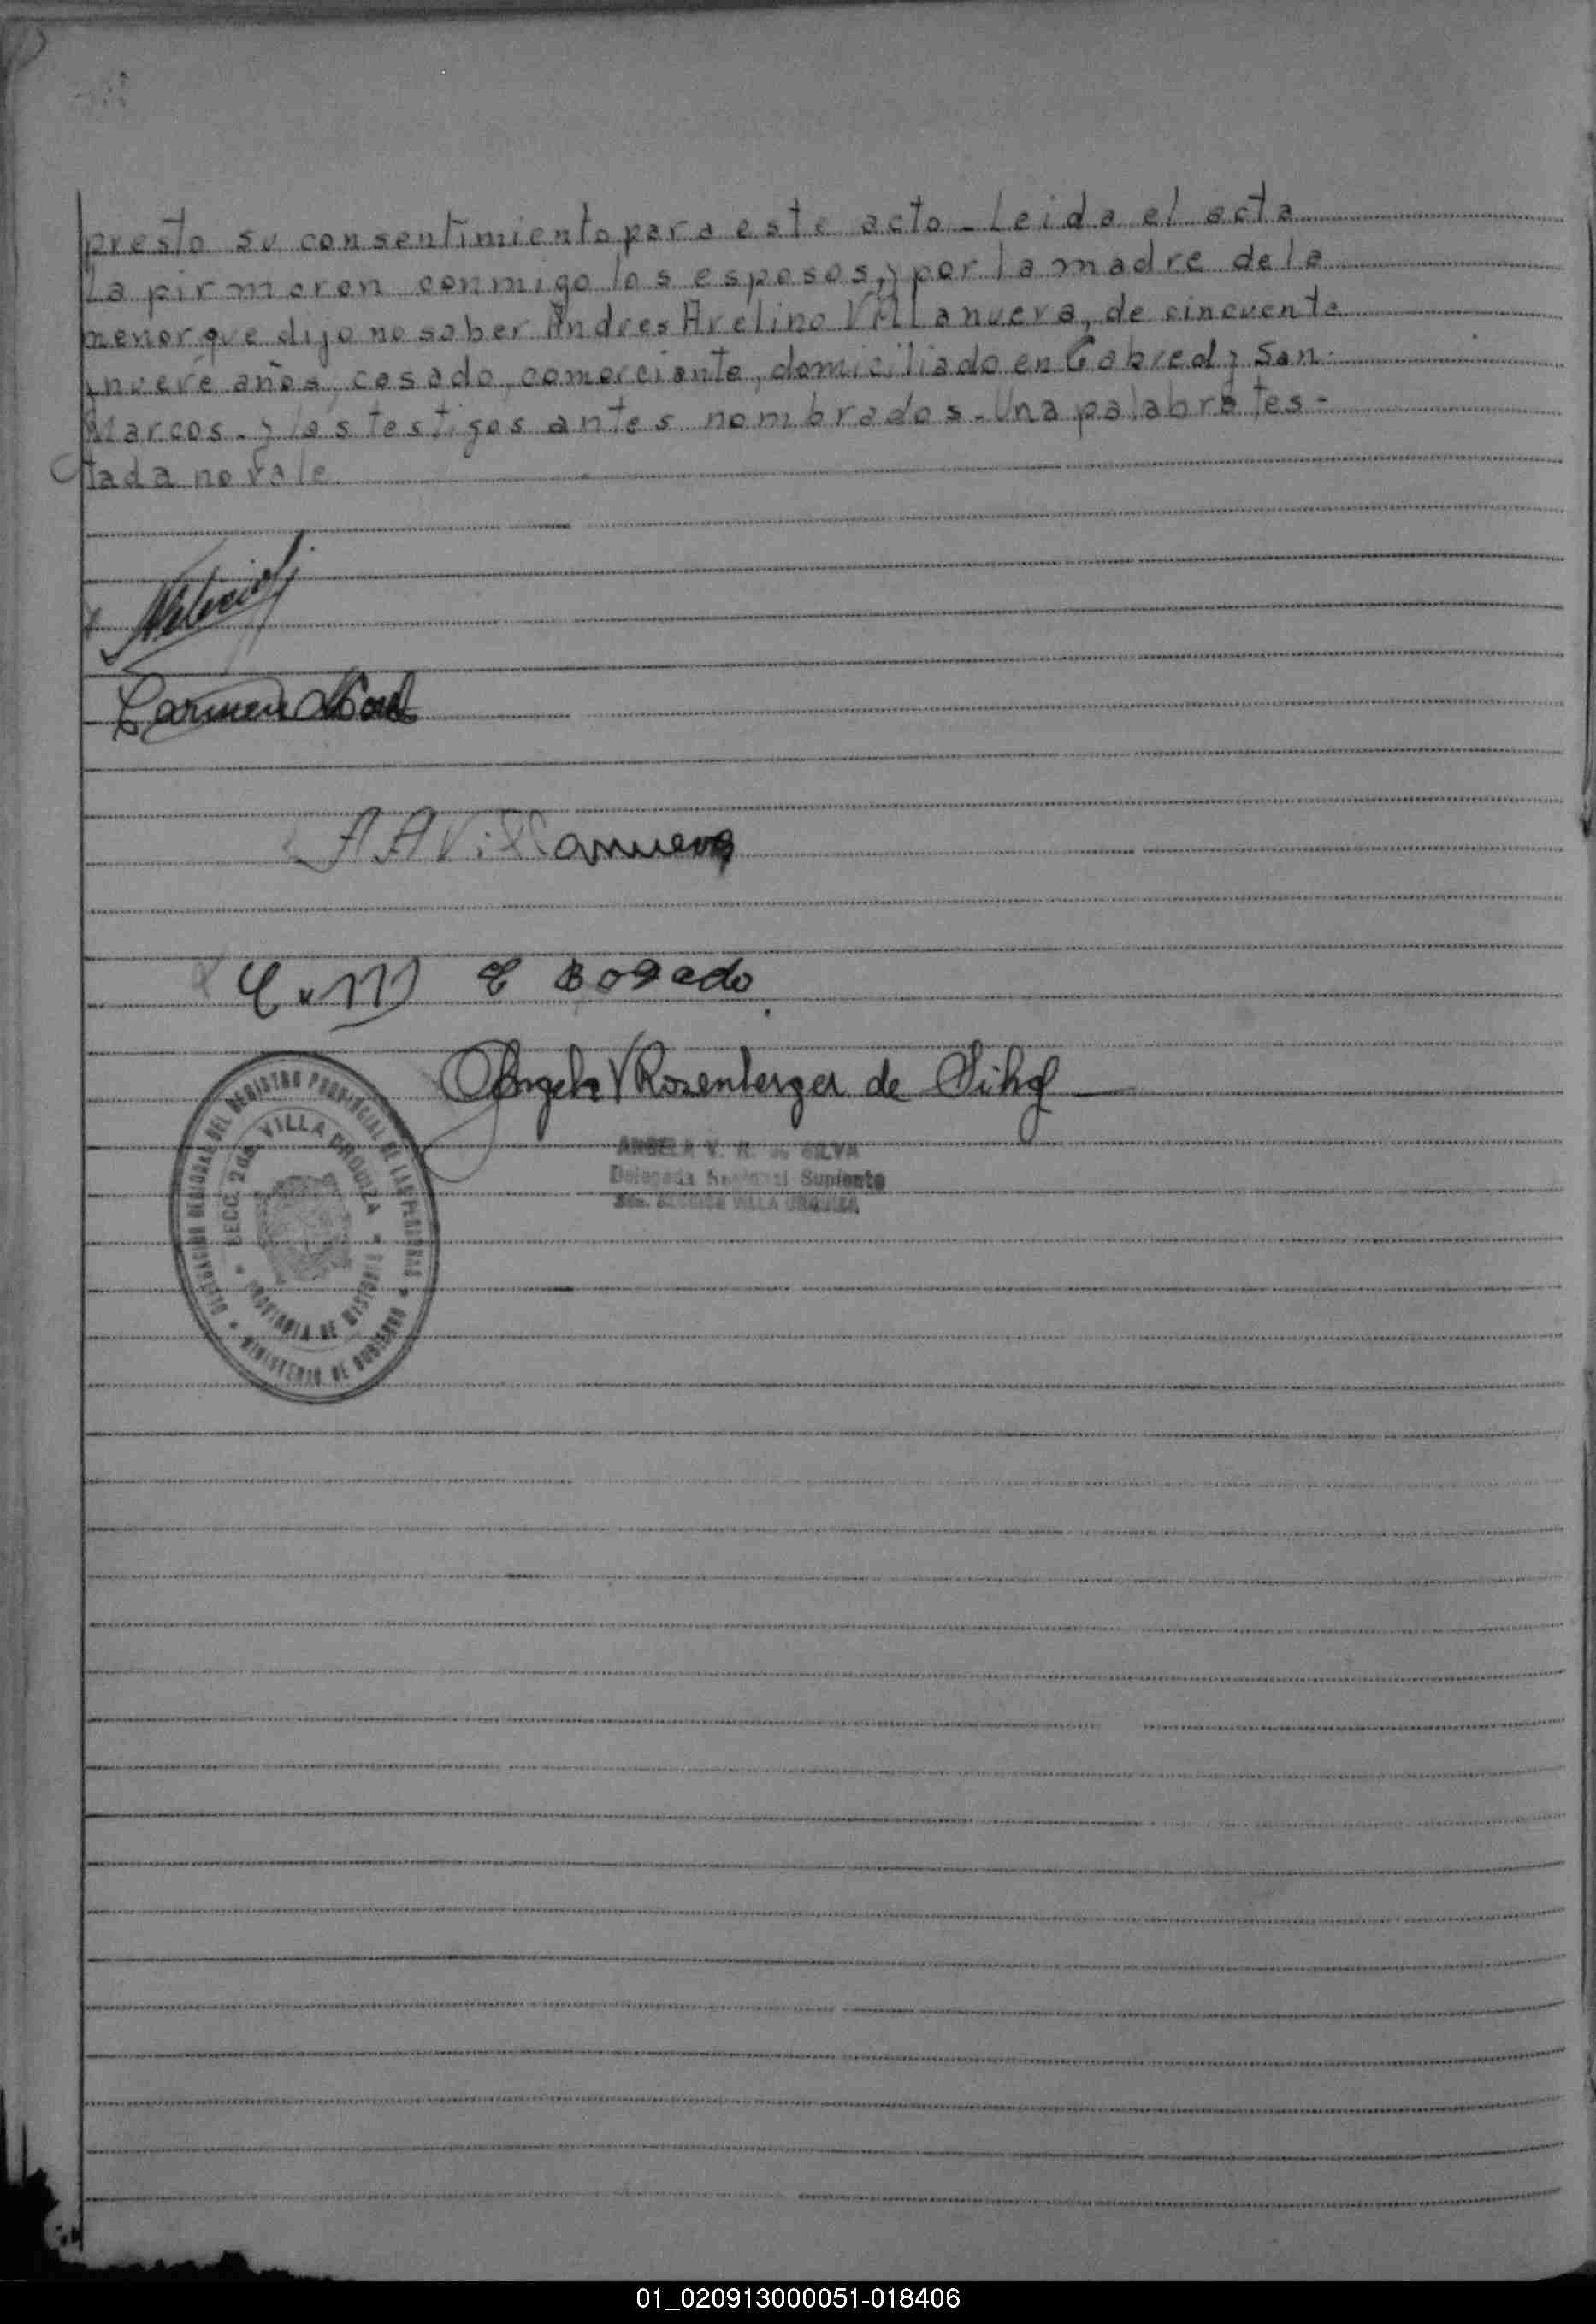 presto su consentimiento para este acto - Leida el acta
la pirmaron conmigo los esposos, y por la madre dela
menor que dijo no saber Andres Avelino Villanueva, de cincuenta
y nueve años, casado, comerciante, domiciliado en Cabred y San
Marcos - y los testigos antes nombrados - Una palabra tes-
tada no vale
Carmen
A A Villanueva
Bogado
Angela V Rosenberger de Silva
ANGELA V. R. de SILVA
Delegada Seccional Suplente
VILLA URQUIZA
DELEGACION REGIONAL DEL REGISTRO PROVINCIAL DE LAS PERSONAS
SECC. 2da VILLA URQUIZA
PROVINCIA DE MISIONES
MINISTERIO DE GOBIERNO
01_020913000051-018406